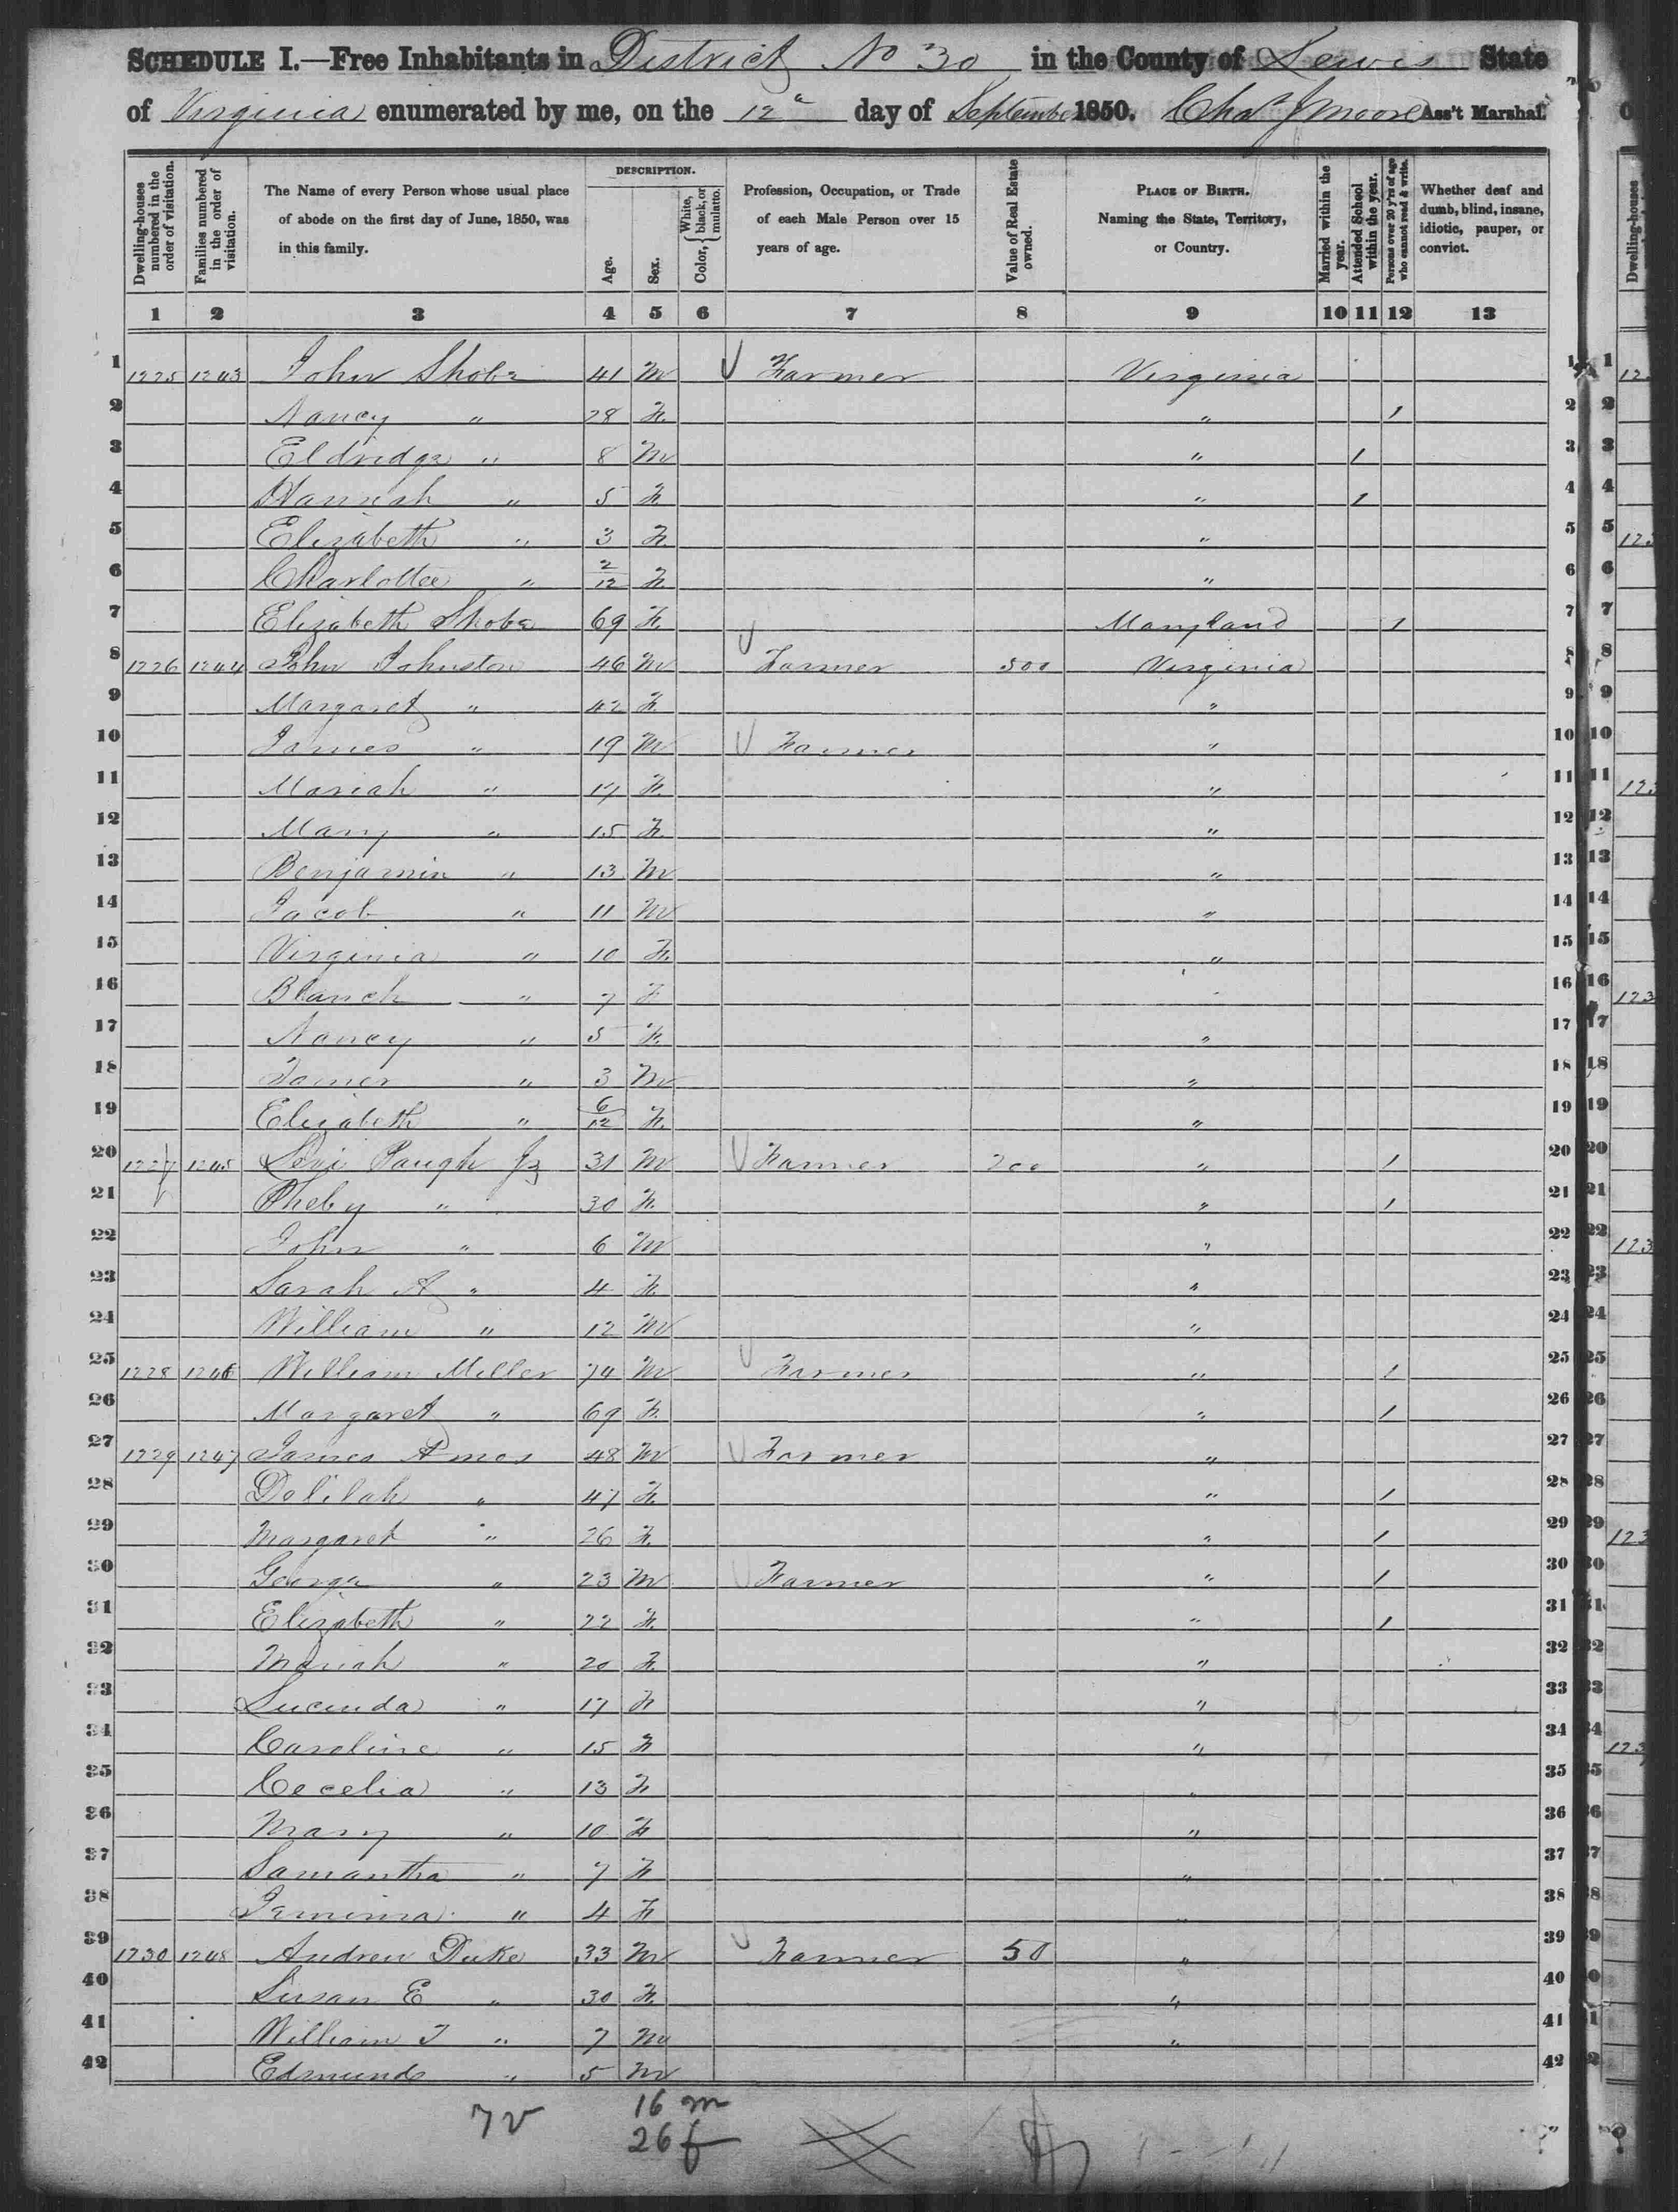 SCHEDULE I.—Free Inhabitants in District No 30 in the County of Lewis State
of Virginia enumerated by me, on the 12 day of September 1850. Chas J Moore Ass't Marshal.
Dwelling-houses numbered in the order of visitation.
Families numbered in the order of visitation.
The Name of every Person whose usual place of abode on the first day of June, 1850, was in this family.
DESCRIPTION.
Age.
Sex.
Color, { White, black, or mulatto.
Profession, Occupation, or Trade of each Male Person over 15 years of age.
Value of Real Estate owned.
PLACE OF BIRTH. Naming the State, Territory, or Country.
Married within the year.
Attended School within the year.
Persons over 20 y'rs of age who cannot read & write.
Whether deaf and dumb, blind, insane, idiotic, pauper, or convict.
Dwelling-houses
1 2 3 4 5 6 7 8 9 10 11 12 13
1 1225 1243 John Shobe 41 M Farmer Virginia 1
2 Nancy " 28 F. " 1 2
3 Eldridge " 8 M " 1 3
4 Hannah " 5 F. " 1 4
5 Elizabeth " 3 F. " 5
6 Charlottee " 2/12 F. " 6
7 Elizabeth Shobe 69 F. Maryland 1 7
8 1226 1244 John Johnston 46 M Farmer 500 Virginia 8
9 Margaret " 42 F. " 9
10 James " 19 M Farmer " 10
11 Mariah " 17 F. " 11
12 Mary " 15 F. " 12
13 Benjamin " 13 M " 13
14 Jacob " 11 M " 14
15 Virginia " 10 F. " 15
16 Blanch " 7 F " 16
17 Nancy " 5 F. " 17
18 " 3 M " 18
19 Elizabeth " 6/12 F. " 19
20 1227 1245 Levi Paugh 31 M Farmer 200 " 1 20
21 Pheby " 30 F. " 1 21
22 John " 6 M " 22
23 Sarah A " 4 F. " 23
24 William " 12 M " 24
25 1228 1246 William Miller 74 M Farmer " 1 25
26 Margaret " 69 F. " 1 26
27 1229 1247 James Amos 48 M Farmer " 27
28 Delilah " 47 F. " 1 28
29 Margaret " 26 F. " 1 29
30 George " 23 M Farmer " 1 30
31 Elizabeth " 22 F. " 1 31
32 Mariah " 20 F. " 32
33 Lucinda " 17 F " 33
34 Caroline " 15 F " 34
35 Cecelia " 13 F " 35
36 Mary " 10 F " 36
37 Samantha " 7 F " 37
38 Jemima " 4 F " 38
39 1230 1248 Andrew Duke 33 M Farmer 50 " 39
40 Susan E " 30 F. " 40
41 William T " 7 M " 41
42 Edmund " 5 M 42
16 m
26 f